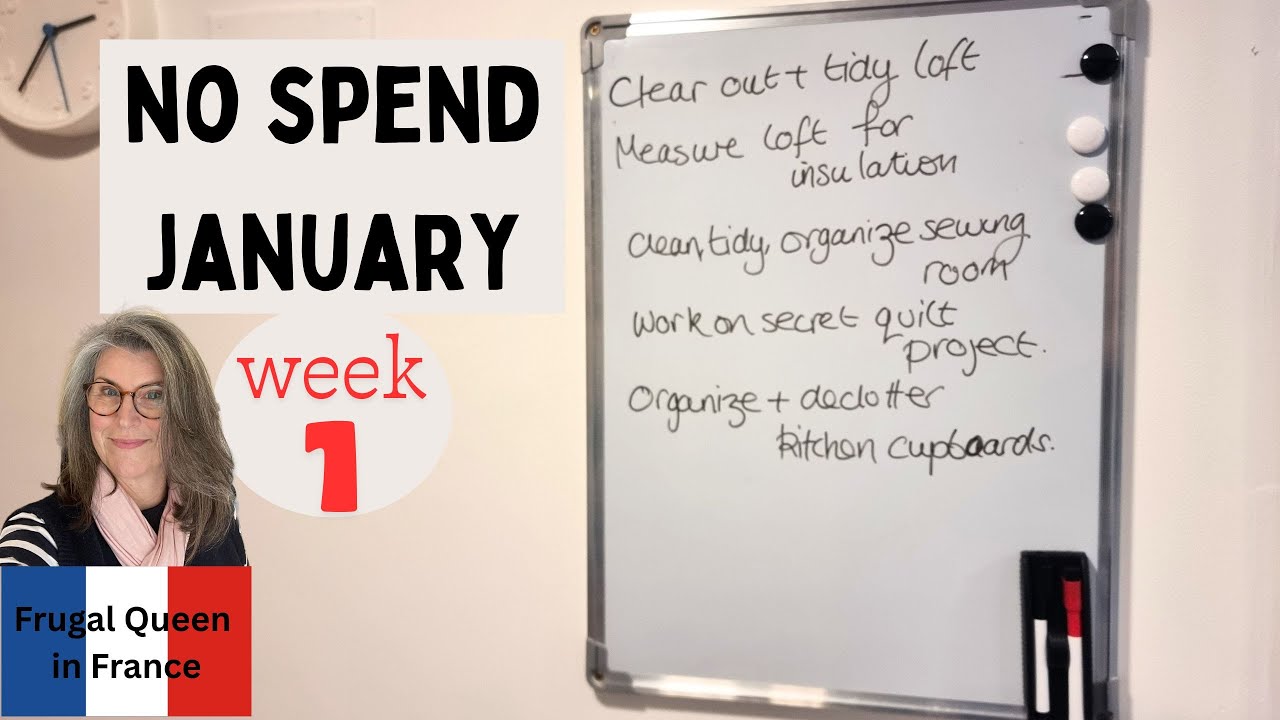 NO SPEND
JANUARY
week
1
Frugal Queen
in France
Clear out + tidy loft
Measure loft for
insulation
clean, tidy, organize sewing
room
work on secret quilt
project.
Organize + declotter
kitchen cupboards.